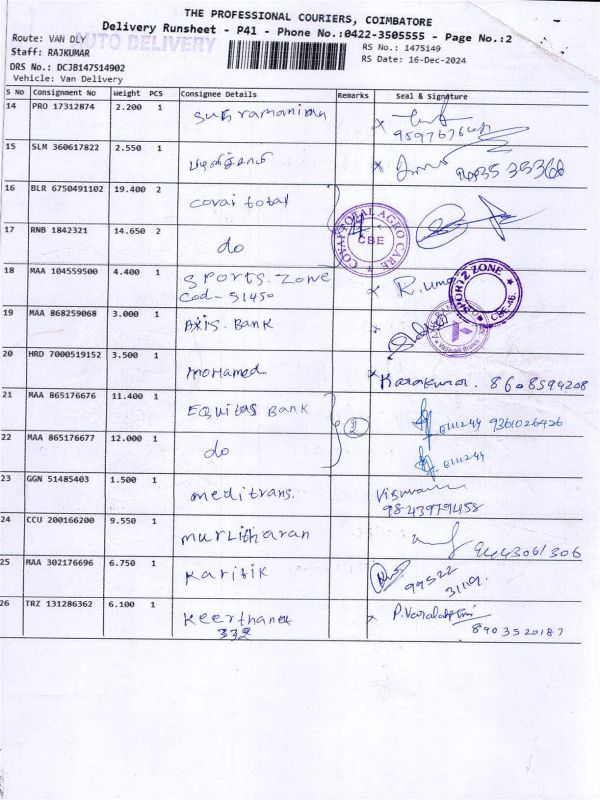 THE PROFESSIONAL COURIERS, COIMBATORE
Delivery Runsheet - P41 - Phone No.:0422-3505555 - Page No.:2
Route: VAN DLY
AUTO DELIVERY
RS No.: 1475149
Staff: RAJKUMAR
RS Date: 16-Dec-2024
DRS No.: DCJB147514902
Vehicle: Van Delivery
S No Consignment No Weight PCS Consignee Details Remarks Seal & Signature
14 PRO 17312874 2.200 1 Subramanian
15 SLM 360617822 2.550 1
16 BLR 6750491102 19.400 2 Covai total
17 RNB 1842321 14.650 2 do
COVAI TOTAL AGRO CARE
CBE
18 MAA 104559500 4.400 1 SPORTS. ZONE
Cod- 51450
R. Uma
SPORTZ ZONE
CBE-46.
19 MAA 868259068 3.000 1 AXIS. BANK
20 HRD 7000519152 3.500 1 mohamed
8608594208
21 MAA 865176676 11.400 1 EQUITAS BANK 2 9361026426
22 MAA 865176677 12.000 1 do
23 GGN 51485403 1.500 1 meditrans.
9843979458
24 CCU 200166200 9.550 1 murlitharan
9443061306
25 MAA 302176696 6.750 1 Karitik
99522
31119.
26 TRZ 131286362 6.100 1 Keerthana
332
8903520187